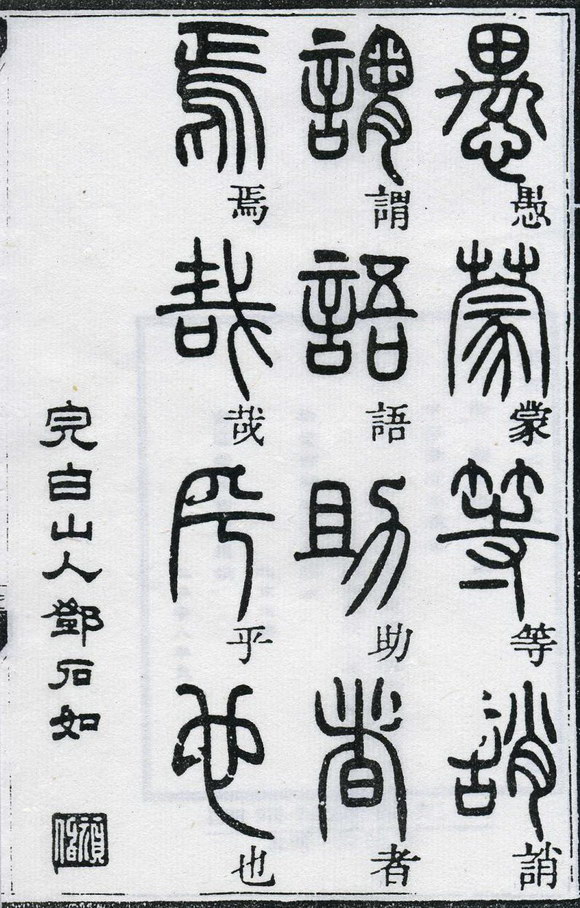 愚蒙等誚
愚蒙等誚
謂語助者
謂語助者
焉哉乎也
焉哉乎也
完白山人鄧石如
頑伯